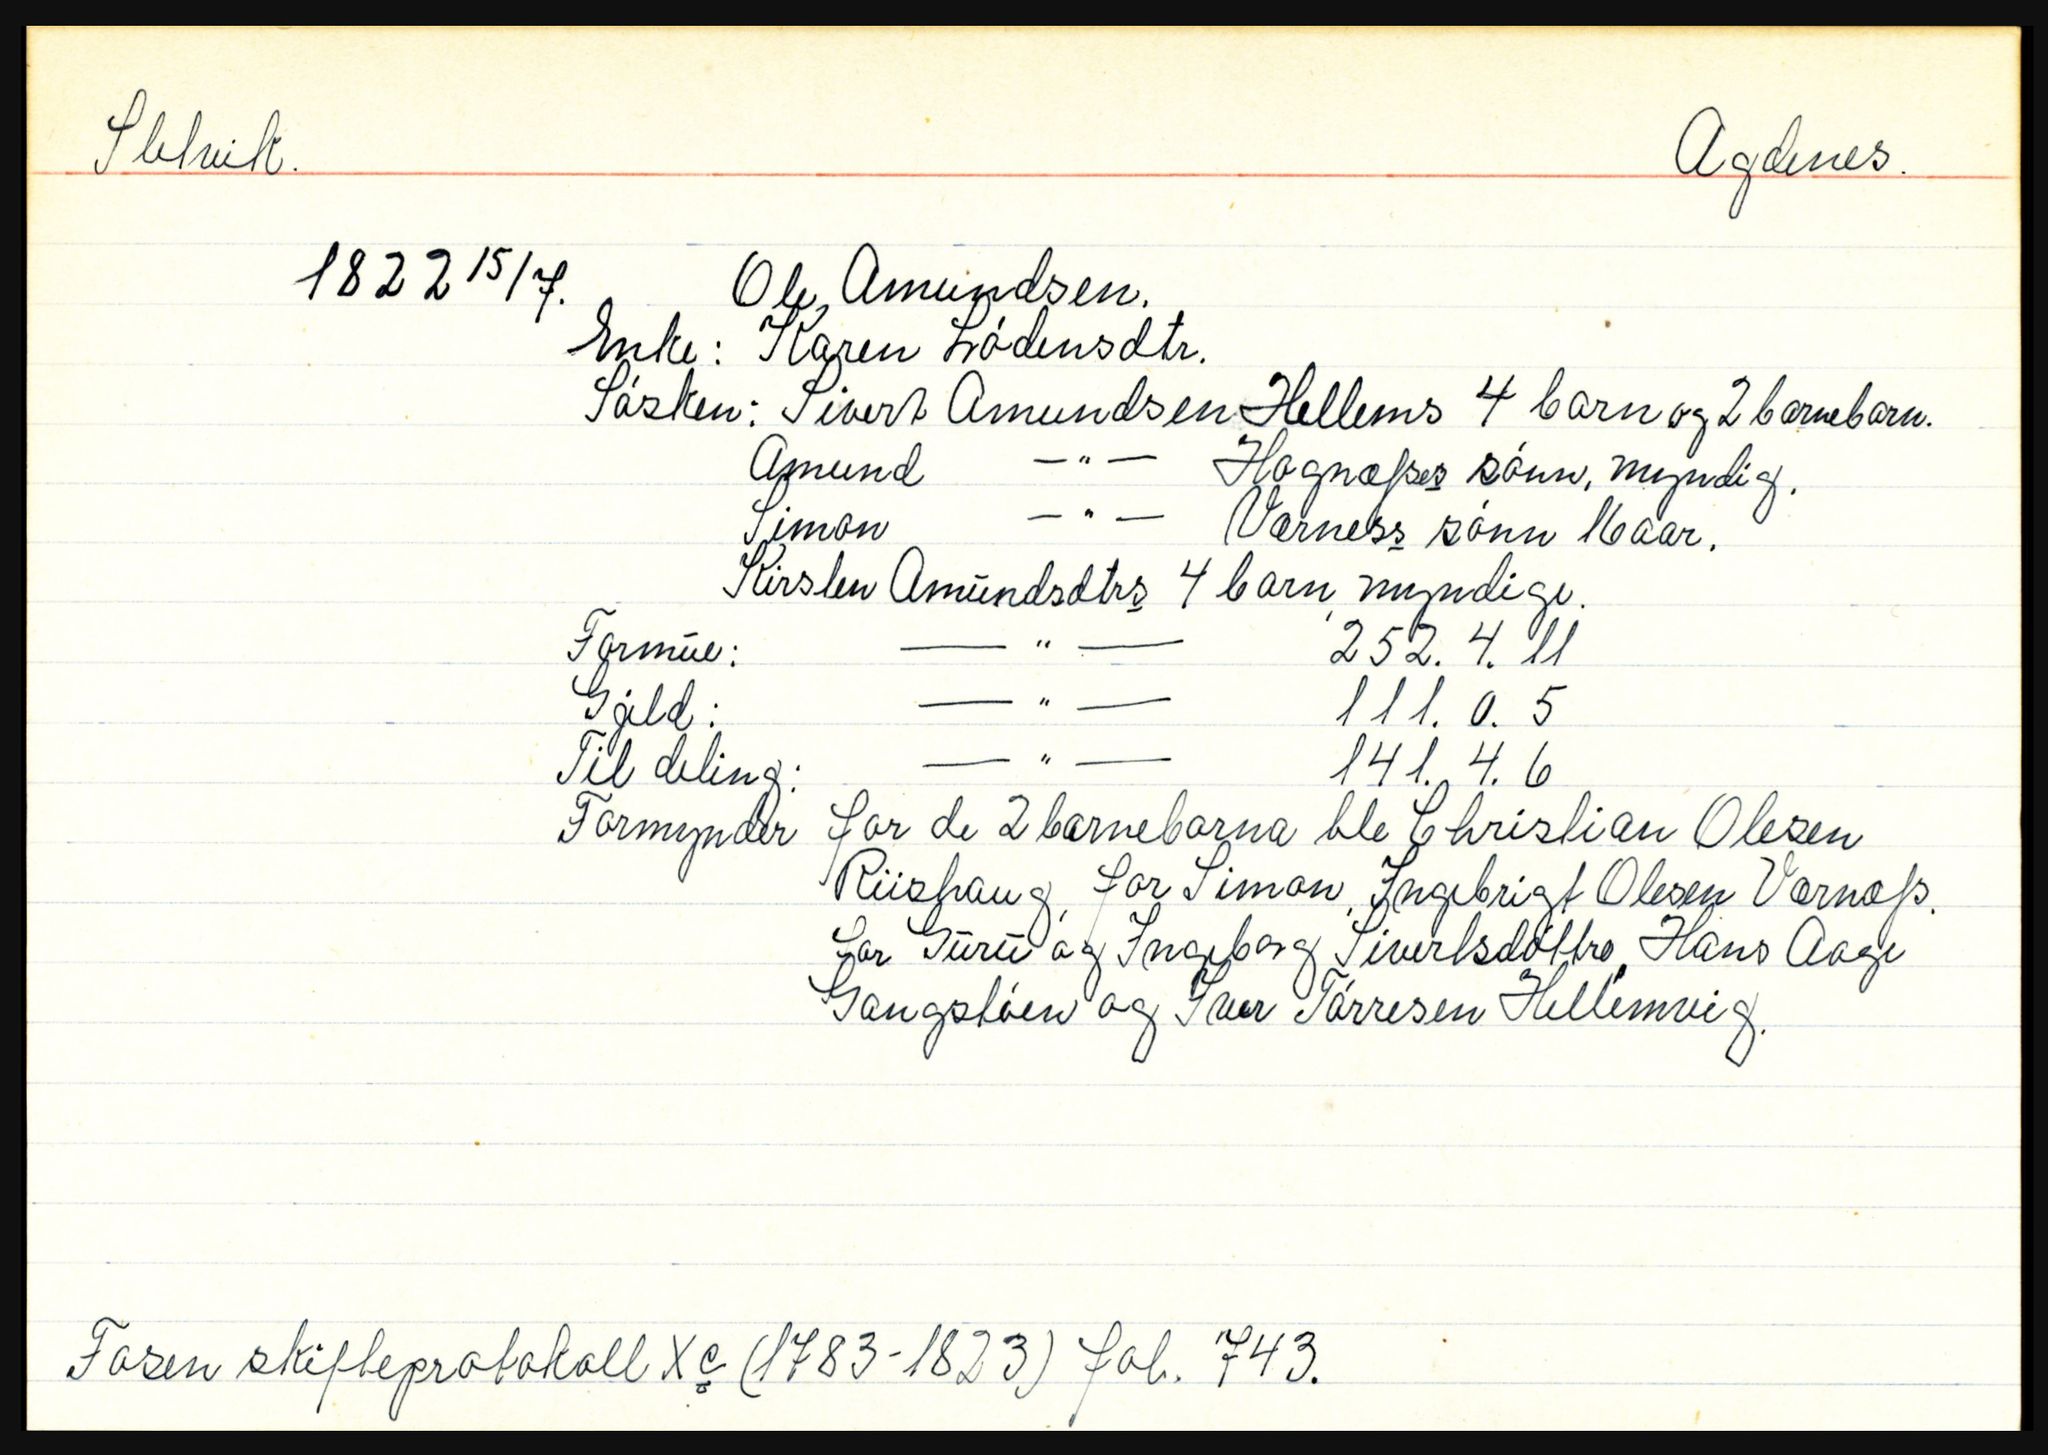 Sletvik. Agdenes.
1822 15/7. Ole Amundsen.
Enke: Karen Lódensdtr.
Sósken: Sivert Amundsen Hellems 4 barn og 2 barnebarn.
Amund —"— Hognæsses sónn, myndig.
Simon —"— Værness sónn 16 aar.
Kirsten Amundsdtrs 4 barn, myndige.
Formue: —"— 252. 4. 11
Gjeld: —"— 111. 0. 5
Til deling: —"— 141. 4. 6
Formynder for de 2 barnebarna ble Christian Olesen
Riishaug, for Simon, Ingebrigt Olesen Værnæss.
for Guru og Ingeborg Sivertsdóttre, Hans Aage
Gangstóen og Iver Tórresen Hellemvig.
Fosen skifteprotokoll Xc (1783-1823) fol. 743.